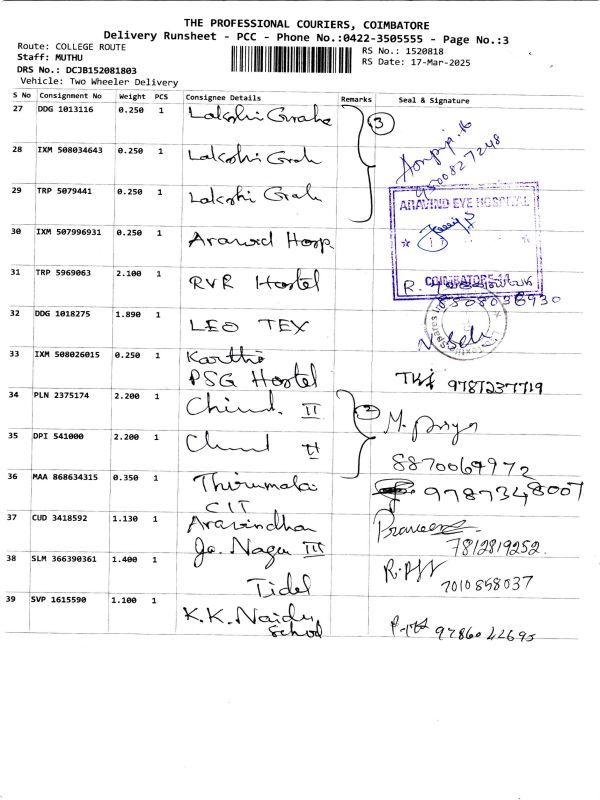 THE PROFESSIONAL COURIERS, COIMBATORE
Delivery Runsheet - PCC - Phone No.:0422-3505555 - Page No.:3
Route: COLLEGE ROUTE
RS No.: 1520818
Staff: MUTHU
RS Date: 17-Mar-2025
DRS No.: DCJB152081803
Vehicle: Two Wheeler Delivery
S No Consignment No Weight PCS Consignee Details Remarks Seal & Signature
27 DDG 1013116 0.250 1 Lakshi Grah 3
28 IXM 508034643 0.250 1 Lakshi Grah
9500827248
29 TRP 5079441 0.250 1 Lakshi Grah
ARAVIND EYE HOSPITAL
30 IXM 507996931 0.250 1 Aravid Hosp.
COIMBATORE-14
31 TRP 5969063 2.100 1 RVR Hostel R.
8508036930
32 DDG 1018275 1.890 1 LEO TEX
33 IXM 508026015 0.250 1 Karthi
PSG Hostel 9787237719
34 PLN 2375174 2.200 1 Chind. II 2
35 DPI 541000 2.200 1 Chind II M.
8870069972
36 MAA 868634315 0.350 1 Thirumala 9787348007
CIT
37 CUD 3418592 1.130 1 Aravindhan
Ga. Nagar III 7812819252
38 SLM 366390361 1.400 1 Tidel 7010858037
39 SVP 1615590 1.100 1 K.K. Naidu
School 9786042695